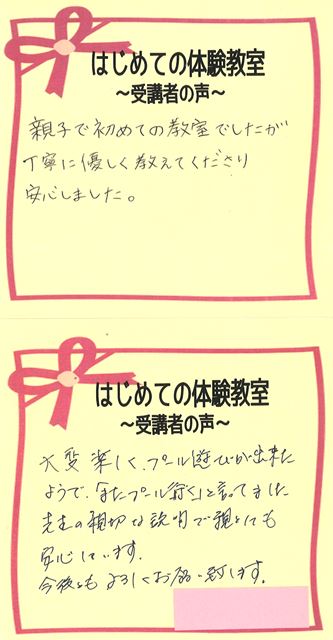 はじめての体験教室
～受講者の声～
親子で初めての教室でしたが
丁寧に優しく教えてくださり
安心しました。
はじめての体験教室
～受講者の声～
大変楽しく、プール遊びが出来た
ようで、「またプール行く」と言ってました
先生の親切な説明で親としても
安心しています。
今後ともよろしくお願い致します。